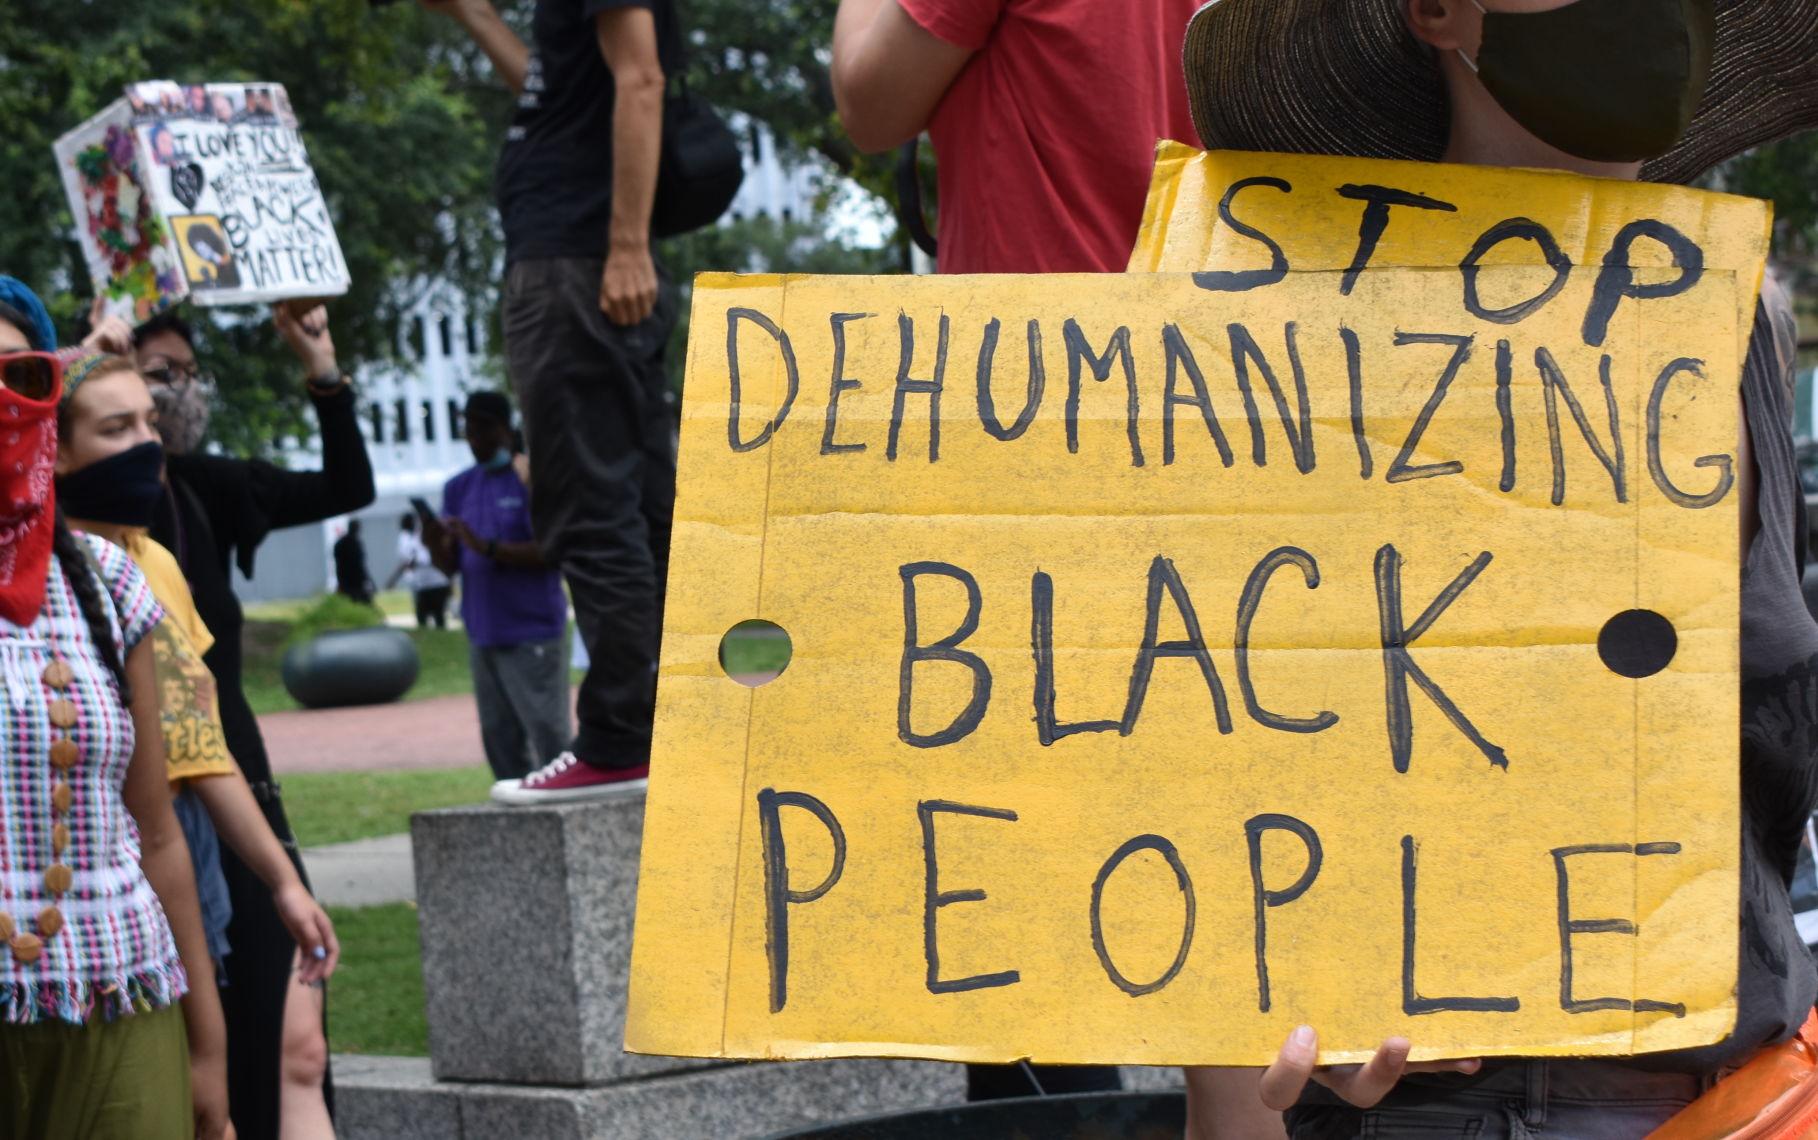 I LOVE YOU!!
BLACK
LIVES
MATTER!
STOP
DEHUMANIZING
BLACK
PEOPLE